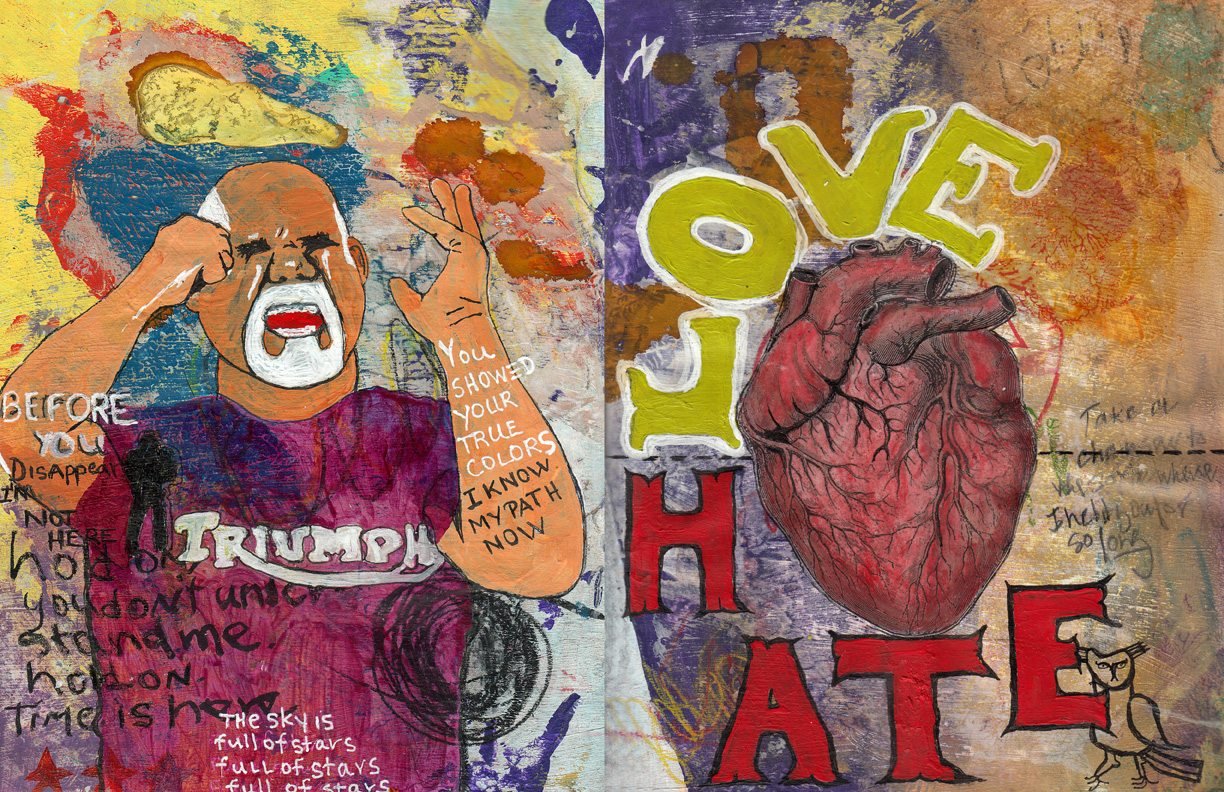 BEFORE
YOU
DISAPPEAR
I'M
NOT
HERE
hold on,
you don't under
stand me.
hold on.
Time is here
YOU
SHOWED
YOUR
TRUE
COLORS
I KNOW
MY PATH
NOW
TRIUMPH
THE SKY IS
full of stars
full of stars
full of stars
LOVE
HATE
Take a
so long